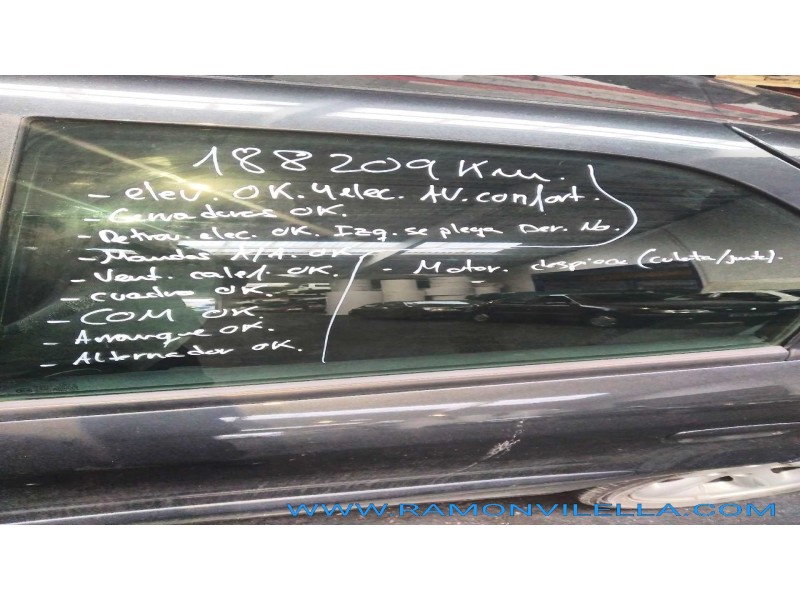 188209 Km.
- elev. OK. 4 elec. AV. confort.
- Cerraduras OK.
- Retrov. elec. OK. Izq. se plega Der. No.
- Mandos A/A. OK
- Vent. calef. OK.
- cuadro OK.
- COM OK.
- Arranque OK.
- Alternador OK.
- Motor. despiece (culata/junta).
WWW.RAMONVILELLA.COM